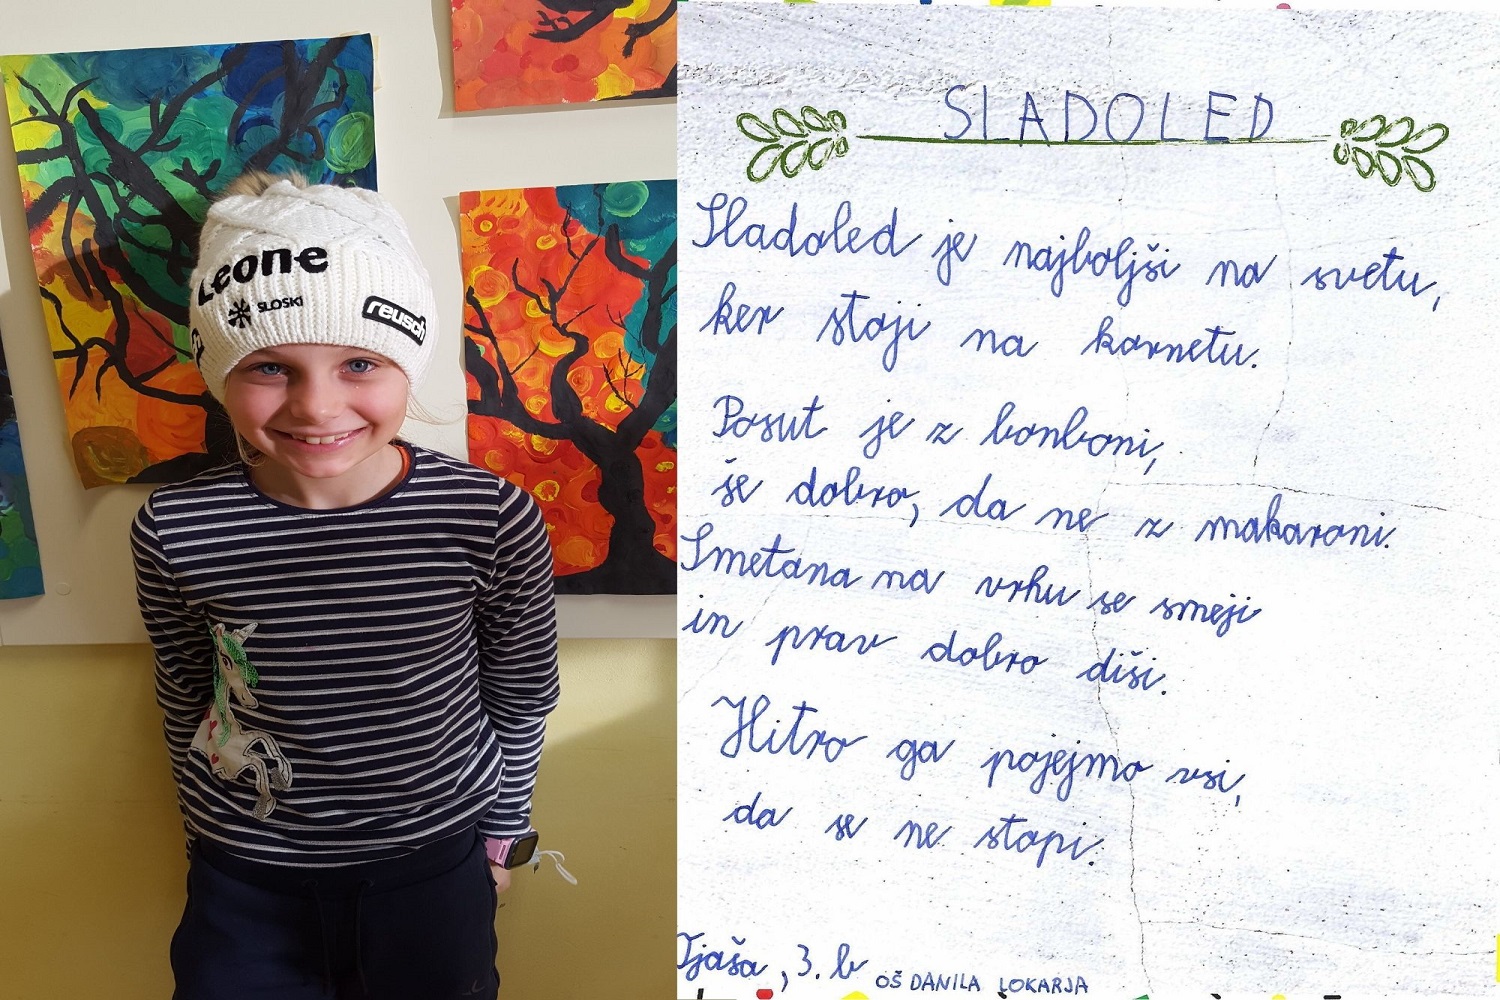 Leone
SLOSKI
reusch
SLADOLED
Sladoled je najboljši na svetu,
ker stoji na kornetu.
Posut je z bonboni,
še dobro, da ne z makaroni.
Smetana na vrhu se smeji
in prav dobro diši.
Hitro ga pojejmo vsi,
da se ne stopi.
Tjaša, 3. b OŠ DANILA LOKARJA